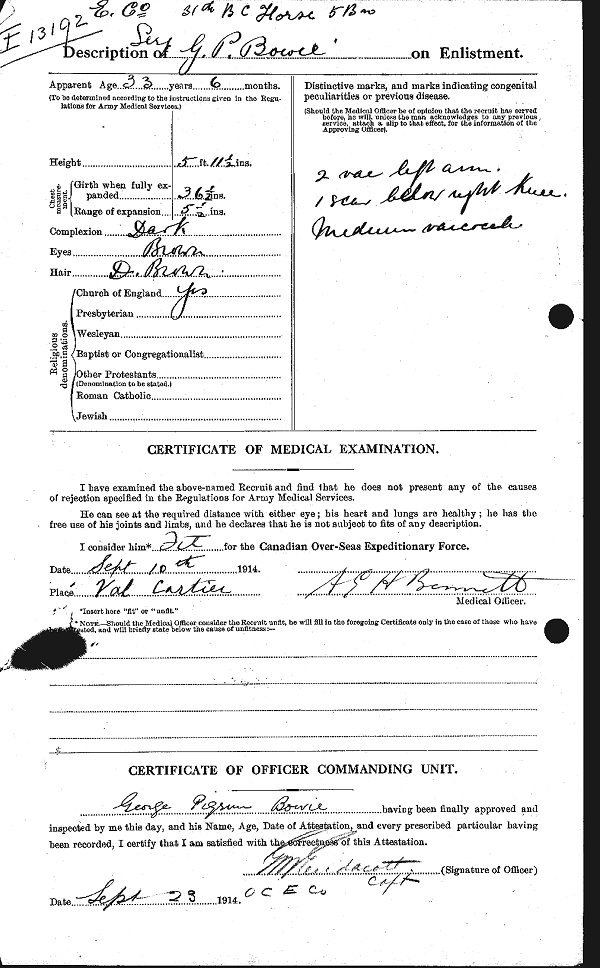 E. Co 31th B C Horse 5 Bn
I 13192
Description of Serg G. P. Bowie on Enlistment.
Apparent Age 33 years 6 months.
(To be determined according to the instructions given in the Regulations for Army Medical Services.)
Height 5 ft. 11½ ins.
Chest measurement.
Girth when fully expanded 36½ ins.
Range of expansion 5½ ins.
Complexion Dark
Eyes Brown
Hair D. Brown
Religious denominations.
Church of England Yes
Presbyterian
Wesleyan
Baptist or Congregationalist
Other Protestants
(Denomination to be stated.)
Roman Catholic
Jewish
Distinctive marks, and marks indicating congenital
peculiarities or previous disease.
(Should the Medical Officer be of opinion that the recruit has served
before, he will, unless the man acknowledges to any previous
service, attach a slip to that effect, for the information of the
Approving Officer).
2 vac left arm.
1 scar below right knee.
Medium varicocele
CERTIFICATE OF MEDICAL EXAMINATION.
I have examined the above-named Recruit and find that he does not present any of the causes
of rejection specified in the Regulations for Army Medical Services.
He can see at the required distance with either eye; his heart and lungs are healthy; he has the
free use of his joints and limbs, and he declares that he is not subject to fits of any description.
I consider him* Fit for the Canadian Over-Seas Expeditionary Force.
Date Sept 10th 1914.
Place Val Cartier A E H Bennett
Medical Officer.
*Insert here "fit" or "unfit."
* NOTE.—Should the Medical Officer consider the Recruit unfit, he will fill in the foregoing Certificate only in the case of those who have
been attested, and will briefly state below the cause of unfitness:—
CERTIFICATE OF OFFICER COMMANDING UNIT.
George Pigrum Bowie having been finally approved and
inspected by me this day, and his Name, Age, Date of Attestation, and every prescribed particular having
been recorded, I certify that I am satisfied with the correctness of this Attestation.
Endacott Capt (Signature of Officer)
O C E Co
Date Sept 23 1914.